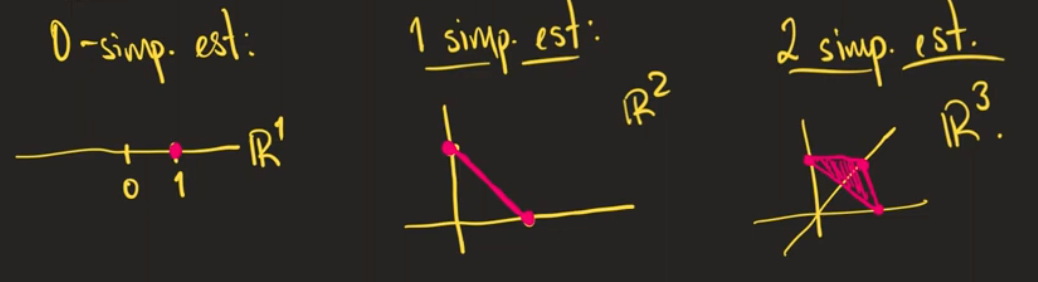 0-simp. est:
0 1 ℝ¹
1 simp. est:
ℝ²
2 simp. est.
ℝ³.